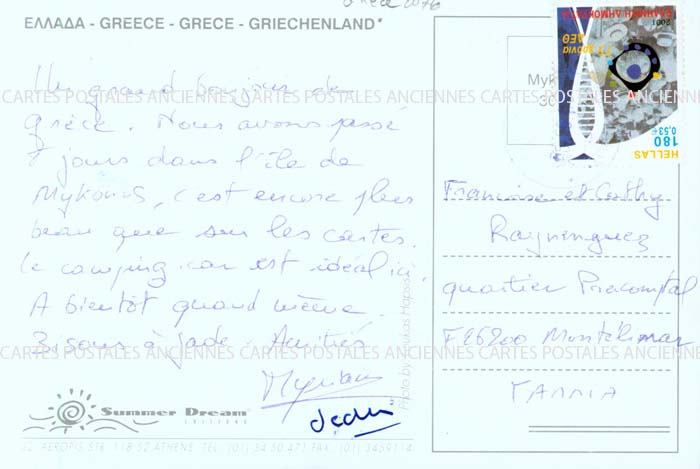 Grèce 2076
ΕΛΛΑΔΑ - GREECE - GRECE - GRIECHENLAND*
Un grand bonjour de
grèce. Nous avons passé
8 jours dans l'île de
Mykonos, c'est encore plus
beau que sur les cartes.
le camping-car est idéal ici.
A bientôt quand même.
Bisous à jade. Amitiés
Myriam
CARTES POSTALES ANCIENNES CARTES POSTALES ANCIENNES CARTES POSTALES ANCIENNES
CARTES POSTALES ANCIENNES CARTES POSTALES ANCIENNES CARTES POSTALES ANCIENNES
Summer Dream
EDITIONS
118 52 ATHENS TEL. (01) 34.50.471 FAX: (01) 3459114
Photo by
Myk
30
ΕΛΛΗΝΙΚΗ ΔΗΜΟΚΡΑΤΙΑ
2001
ΧΡΟΝΙΑ
ΔΕΘ
180
0,53 €
HELLAS
Francoise et Cathy
quartier Pracomtal
F26200 Montélimar
ΓΑΛΛΙΑ